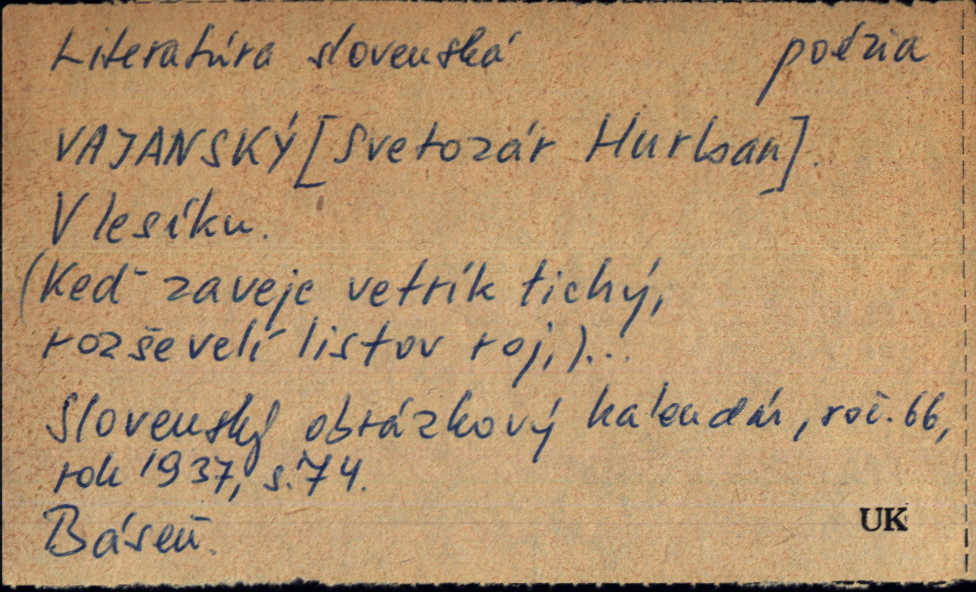 Literatúra slovenská poézia
VAJANSKÝ [Svetozár Hurban].
V lesíku.
(Keď zaveje vetrík tichý,
rozševelí listov roj,)...
Slovenský obrázkový kalendár, roč. 66,
rok 1937, s. 74.
Báseň.
UK